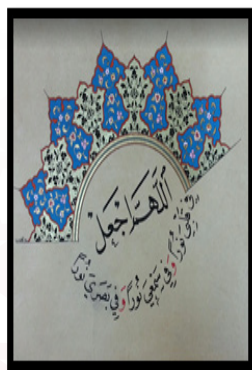 اللهم اجعل
في قلبي نورا وفي سمعي نورا وفي بصري نورا